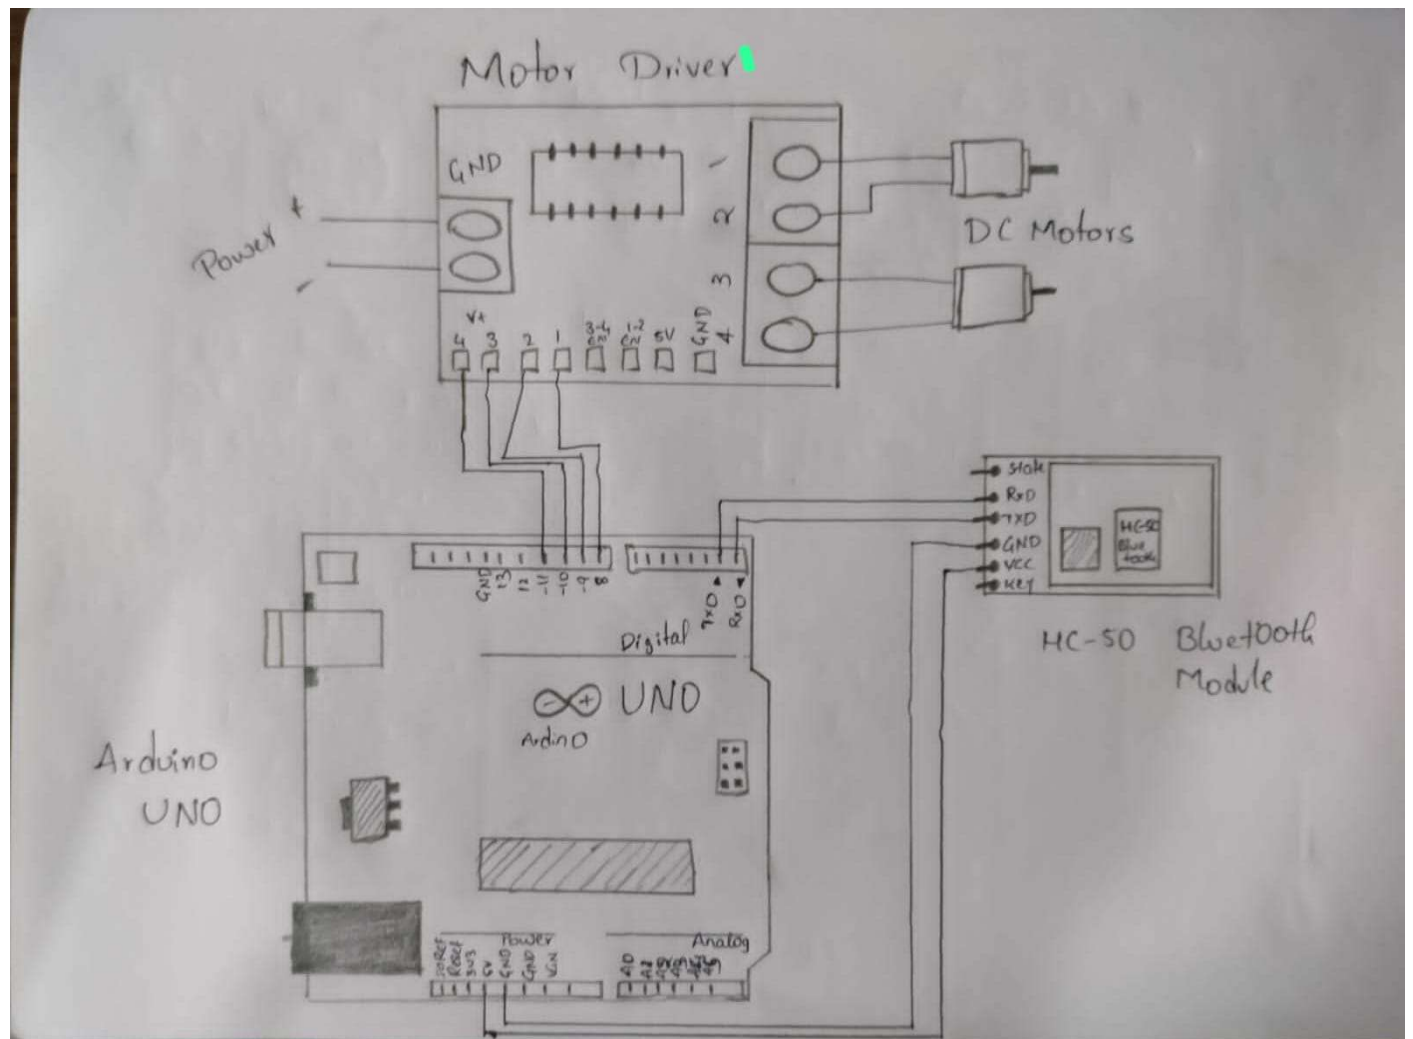 Motor Driver
GND
Power + -
V+
1
2
3
4
DC Motors
4 3 2 1 5V GND
State
RXD
TXD
GND
VCC
KEY
HC-50
Blue
tooth
HC-50 Bluetooth
Module
GND 13 12 -11 -10 -9 8 TXD RXD
Digital
UNO
Ardino
Arduino
UNO
Power Analog
IOREF Reset 3V3 5V GND GND Vin A0